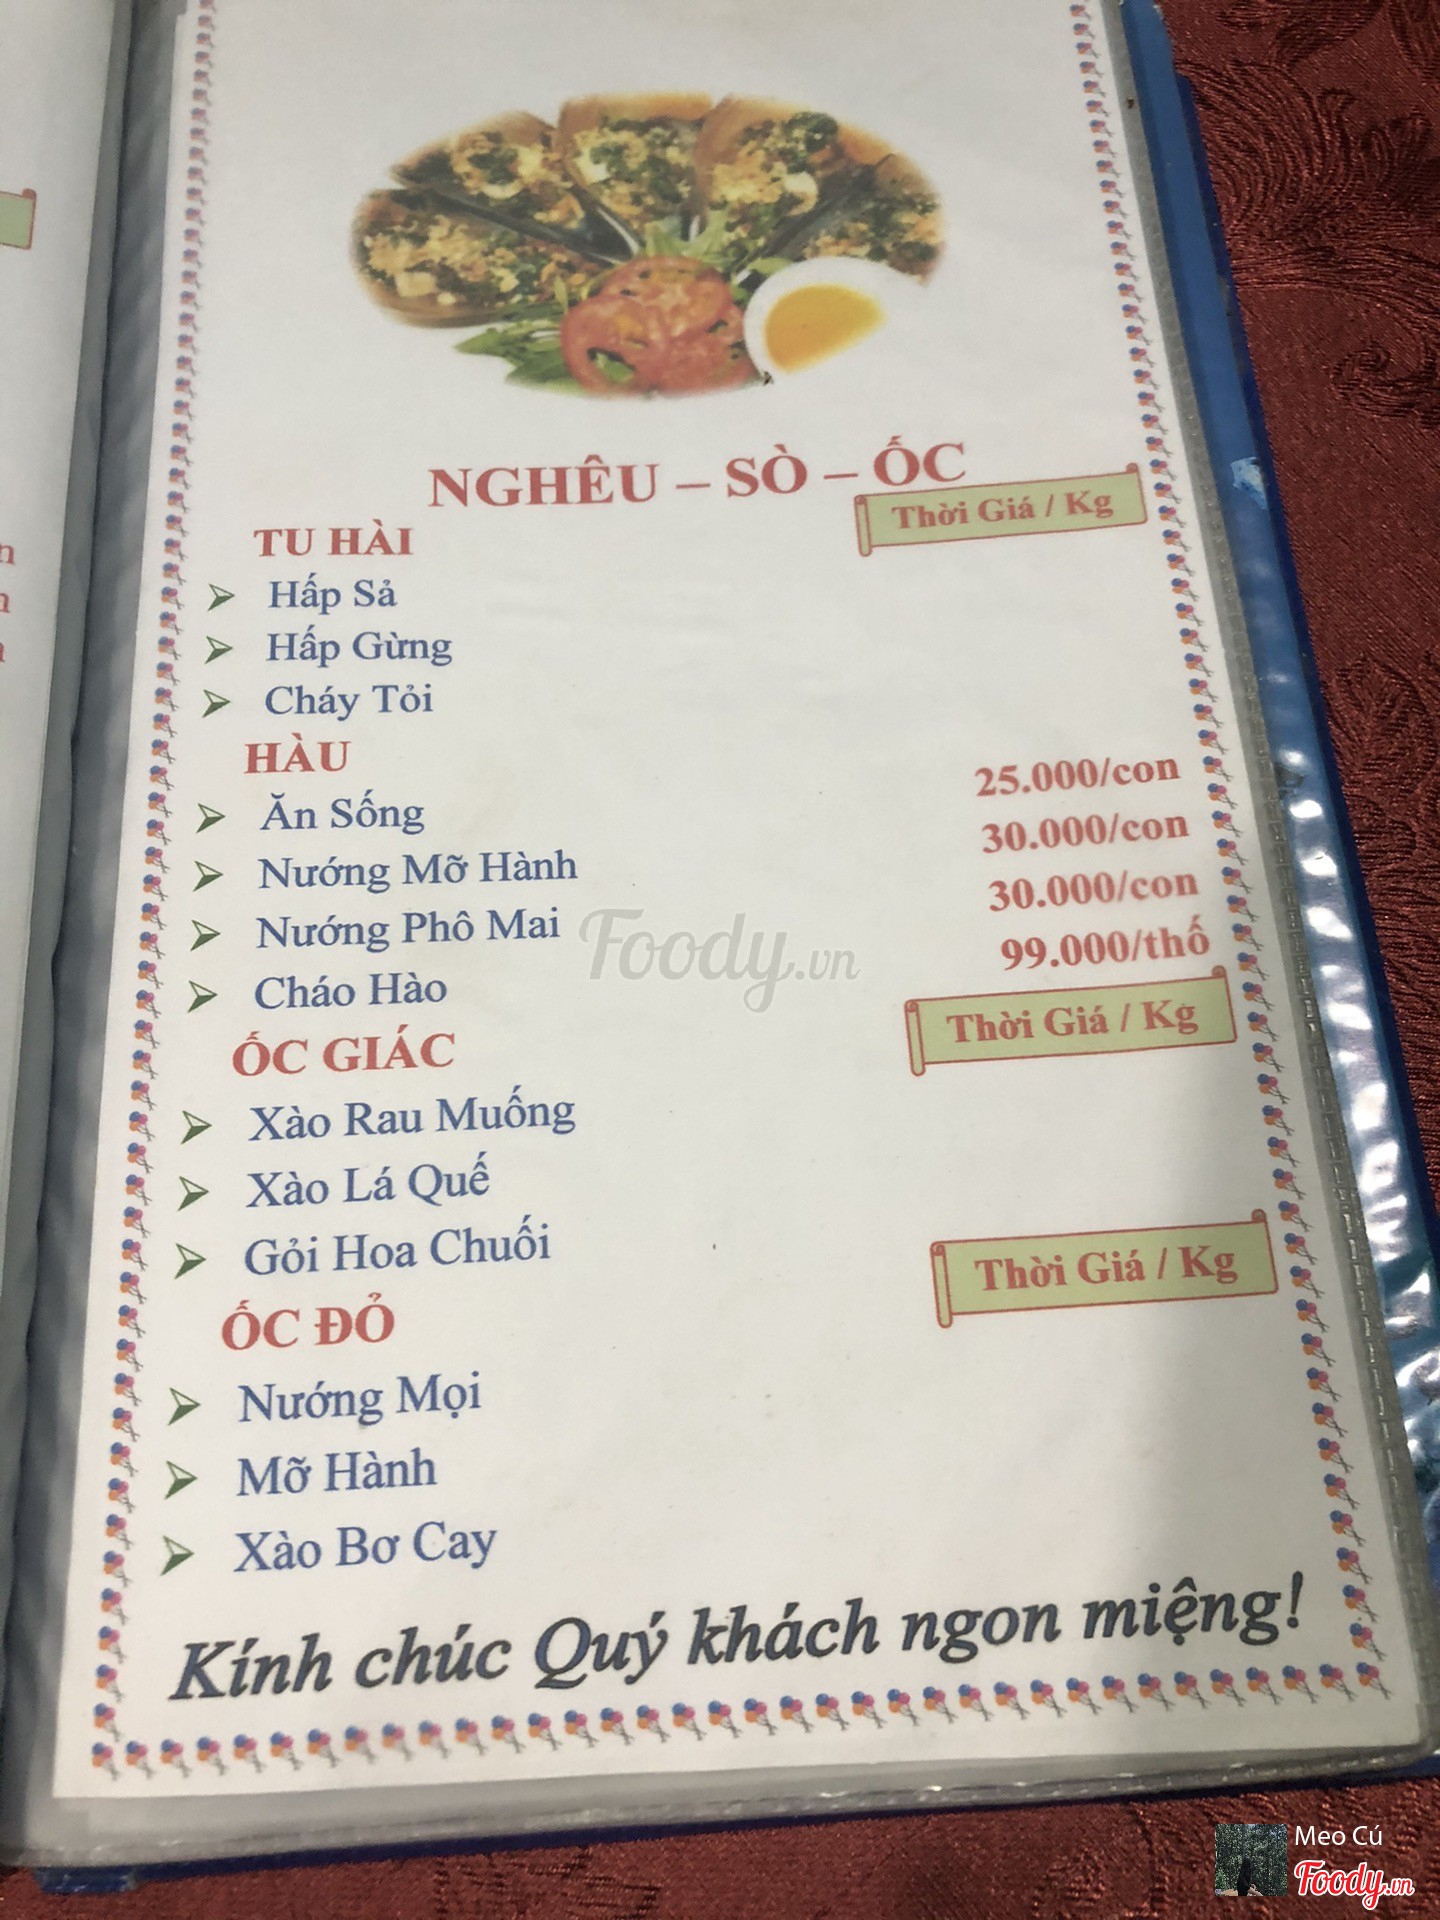 NGHÊU – SÒ – ỐC
TU HÀI Thời Giá / Kg
Hấp Sả
Hấp Gừng
Cháy Tỏi
HÀU
Ăn Sống 25.000/con
Nướng Mỡ Hành 30.000/con
Nướng Phô Mai 30.000/con
Cháo Hào 99.000/thố
ỐC GIÁC Thời Giá / Kg
Xào Rau Muống
Xào Lá Quế
Gỏi Hoa Chuối
ỐC ĐỎ Thời Giá / Kg
Nướng Mọi
Mỡ Hành
Xào Bơ Cay
Kính chúc Quý khách ngon miệng!
Foody.vn
Meo Cú
Foody.vn